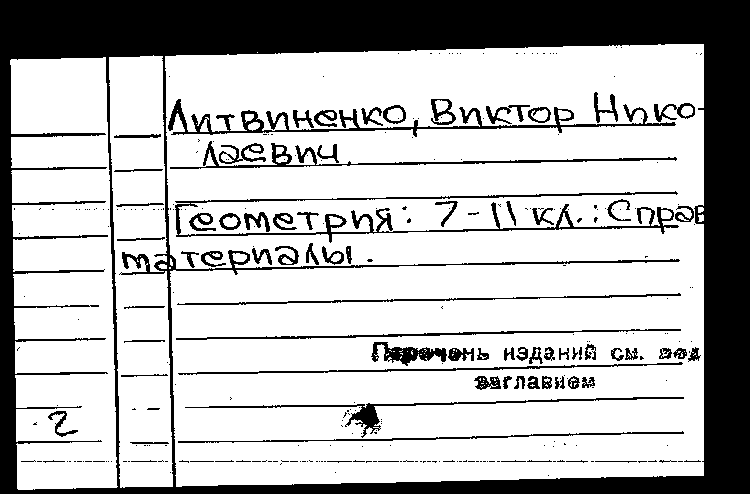 Литвиненко, Виктор Нико-
лаевич.
Геометрия: 7-11 кл.: Справ
материалы.
Перечень изданий см. под
заглавием
2